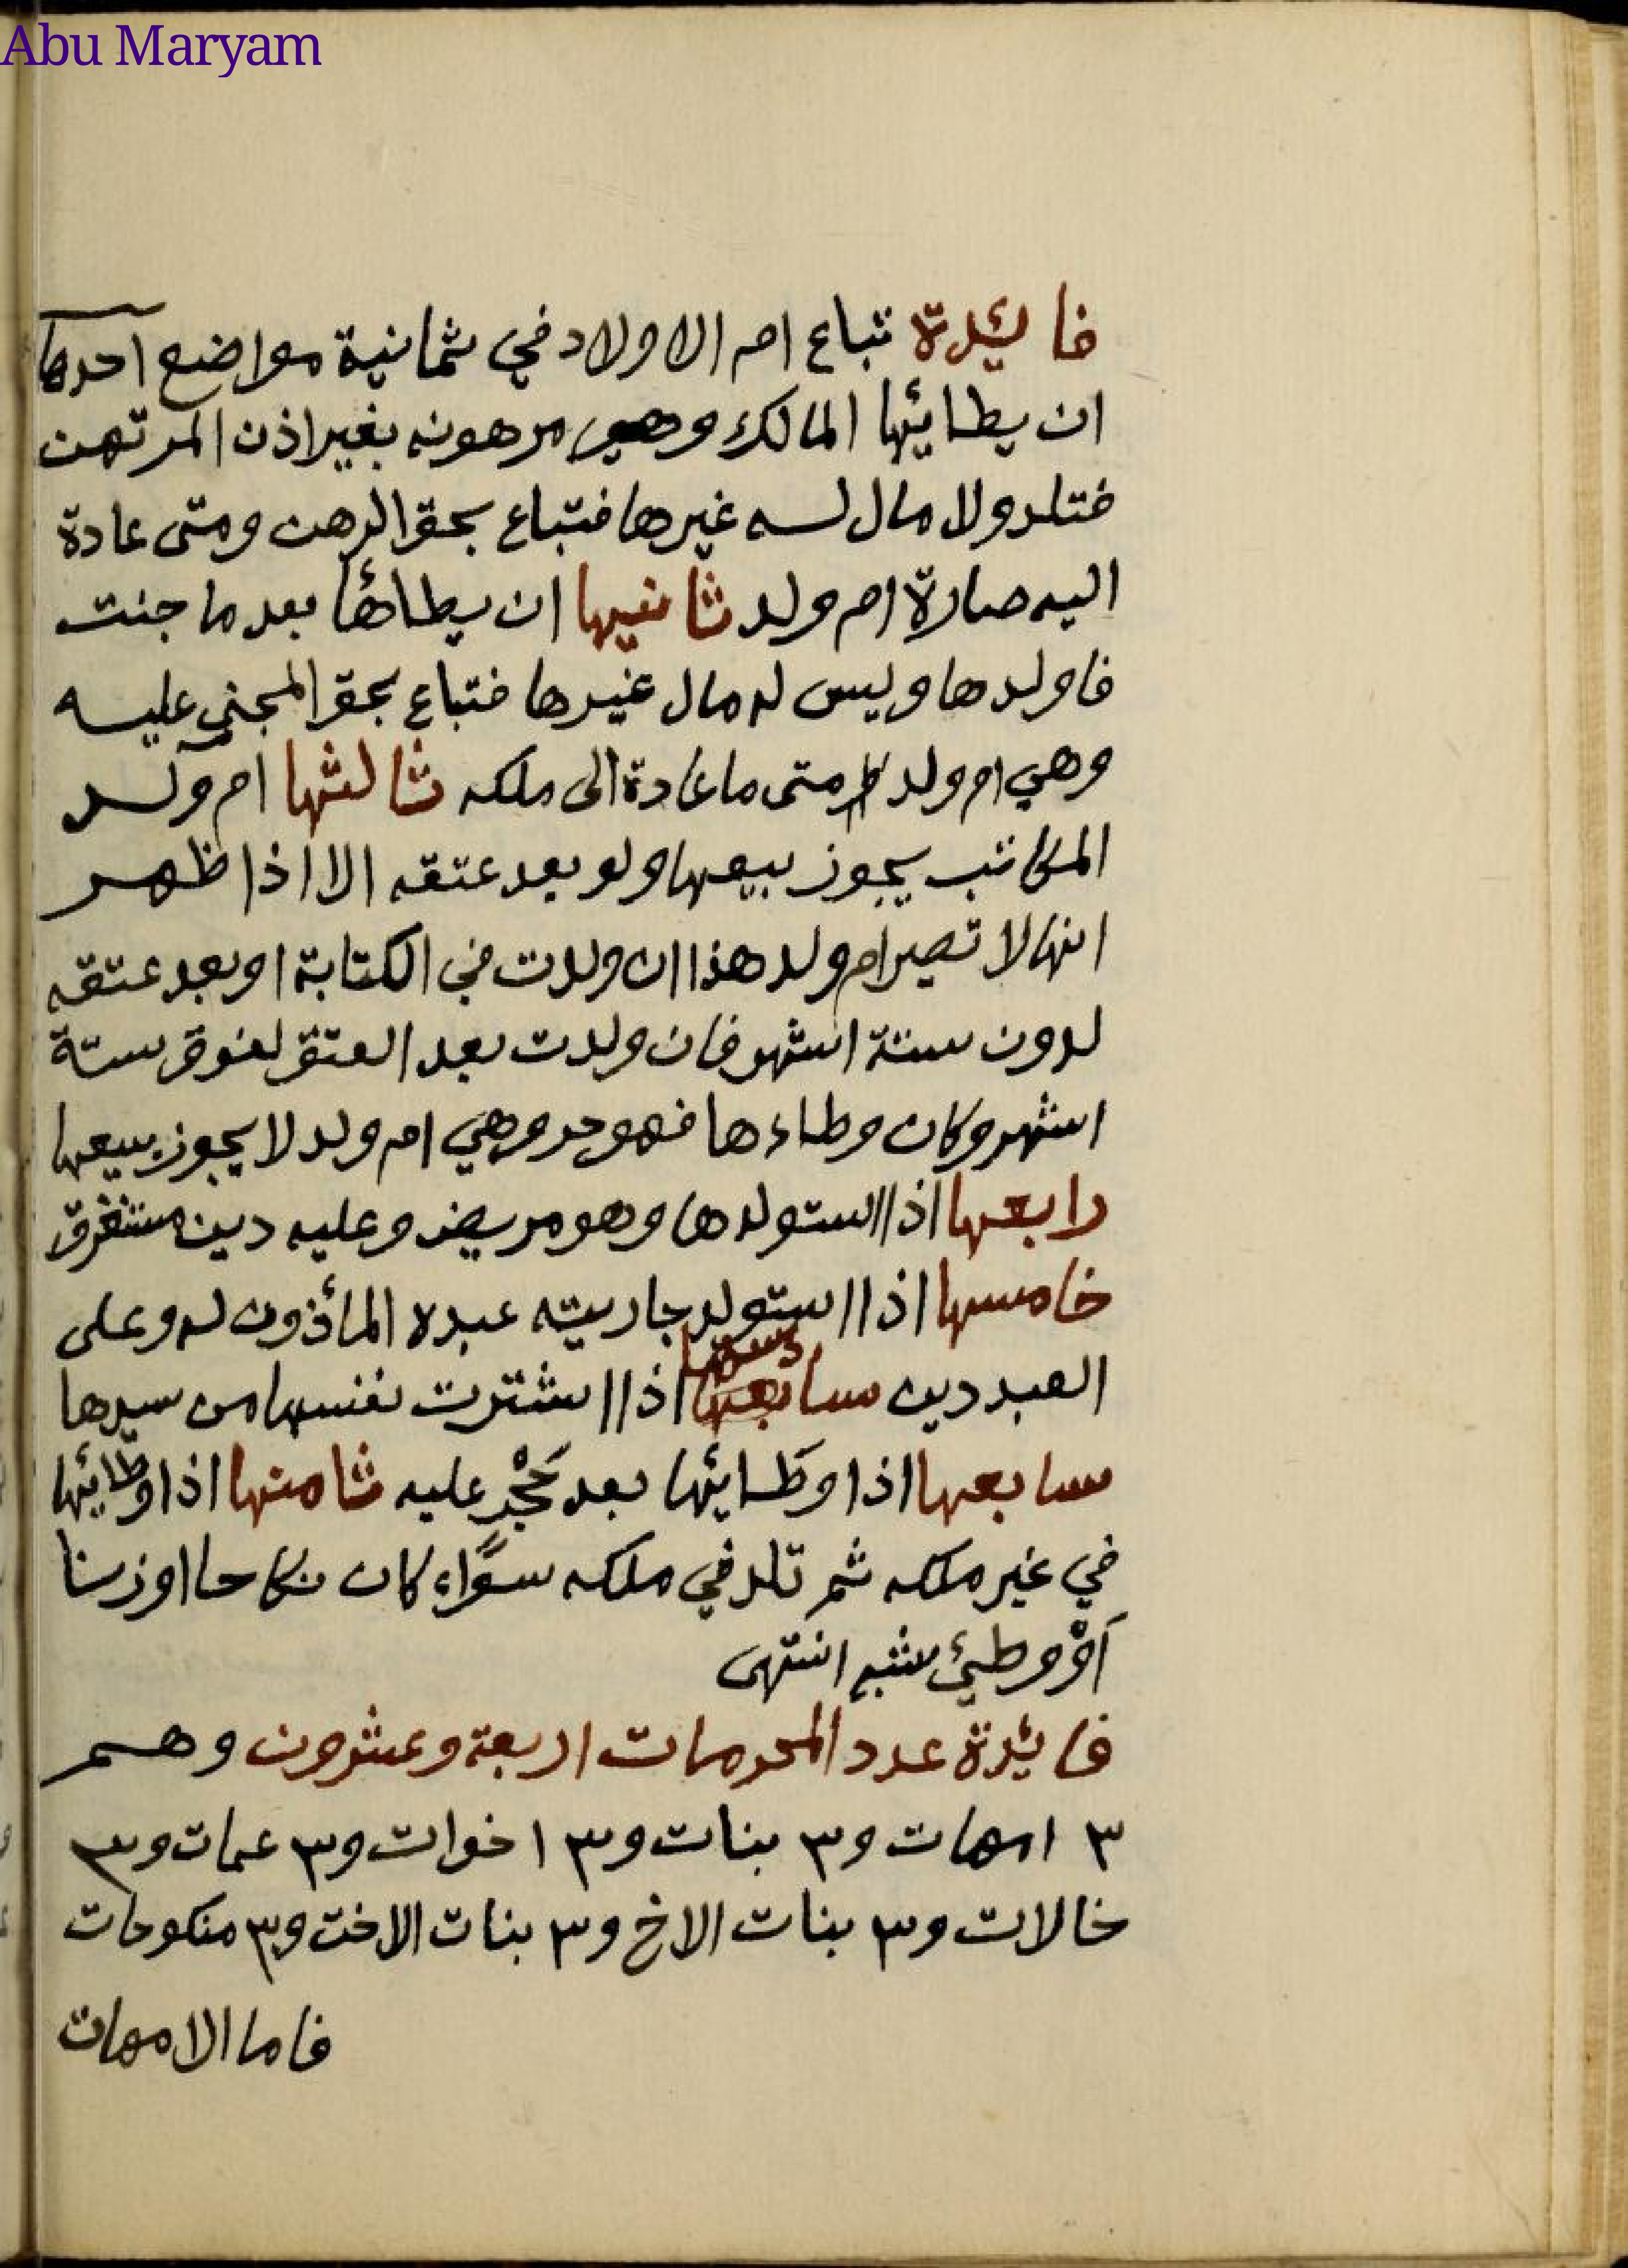 Abu Maryam
فا يئدة تباع ام الاولاد في ثمانية مواضع احدها
ان يطايئها المالك وهي مرهونه بغير اذن المرتهن
فتلد ولا مال له غيرها فتباع بحق الرهن ومتى عادة
اليه صارة ام ولد ثانيها ان يطائها بعد ما جنت
فاولدها وليس له مال غيرها فتباع بحق المجني عليه
وهي ام ولد متى ما عادة الى ملكه ثالثها ام ولد
المكاتب يجوز بيعها ولو بعد عتقه الا اذا ظهر
انها لا تصير ام ولد هذا ان ولدت في الكتابة او بعد عتقه
لدون ستة اشهر فان ولدت بعد العتق لفوق ستة
اشهر وكان وطاءها فهو حر وهي ام ولد لا يجوز بيعها
رابعها اذا استولدها وهو مريض وعليه دين مستغرق
خامسها اذا استولد جاريته عبده المائذون له وعلى
العبد دين سادسها اذا اشترت نفسها من سيدها
سابعها اذا وطايئها بعد حَجْر عليه ثامنها اذا وطايئها
في غير ملكه ثم تلد في ملكه سوًاء كان نكاحا او زنا
اَوْ وطئ شبه انتهى
فا يئدة عدد المحرمات اربعة وعشرون وهم
٣ امهات و٣ بنات و٣ اخوات و٣ عمات و٣
خالات و٣ بنات الاخ و٣ بنات الاخت و٣ منكوحات
فاما الامهات